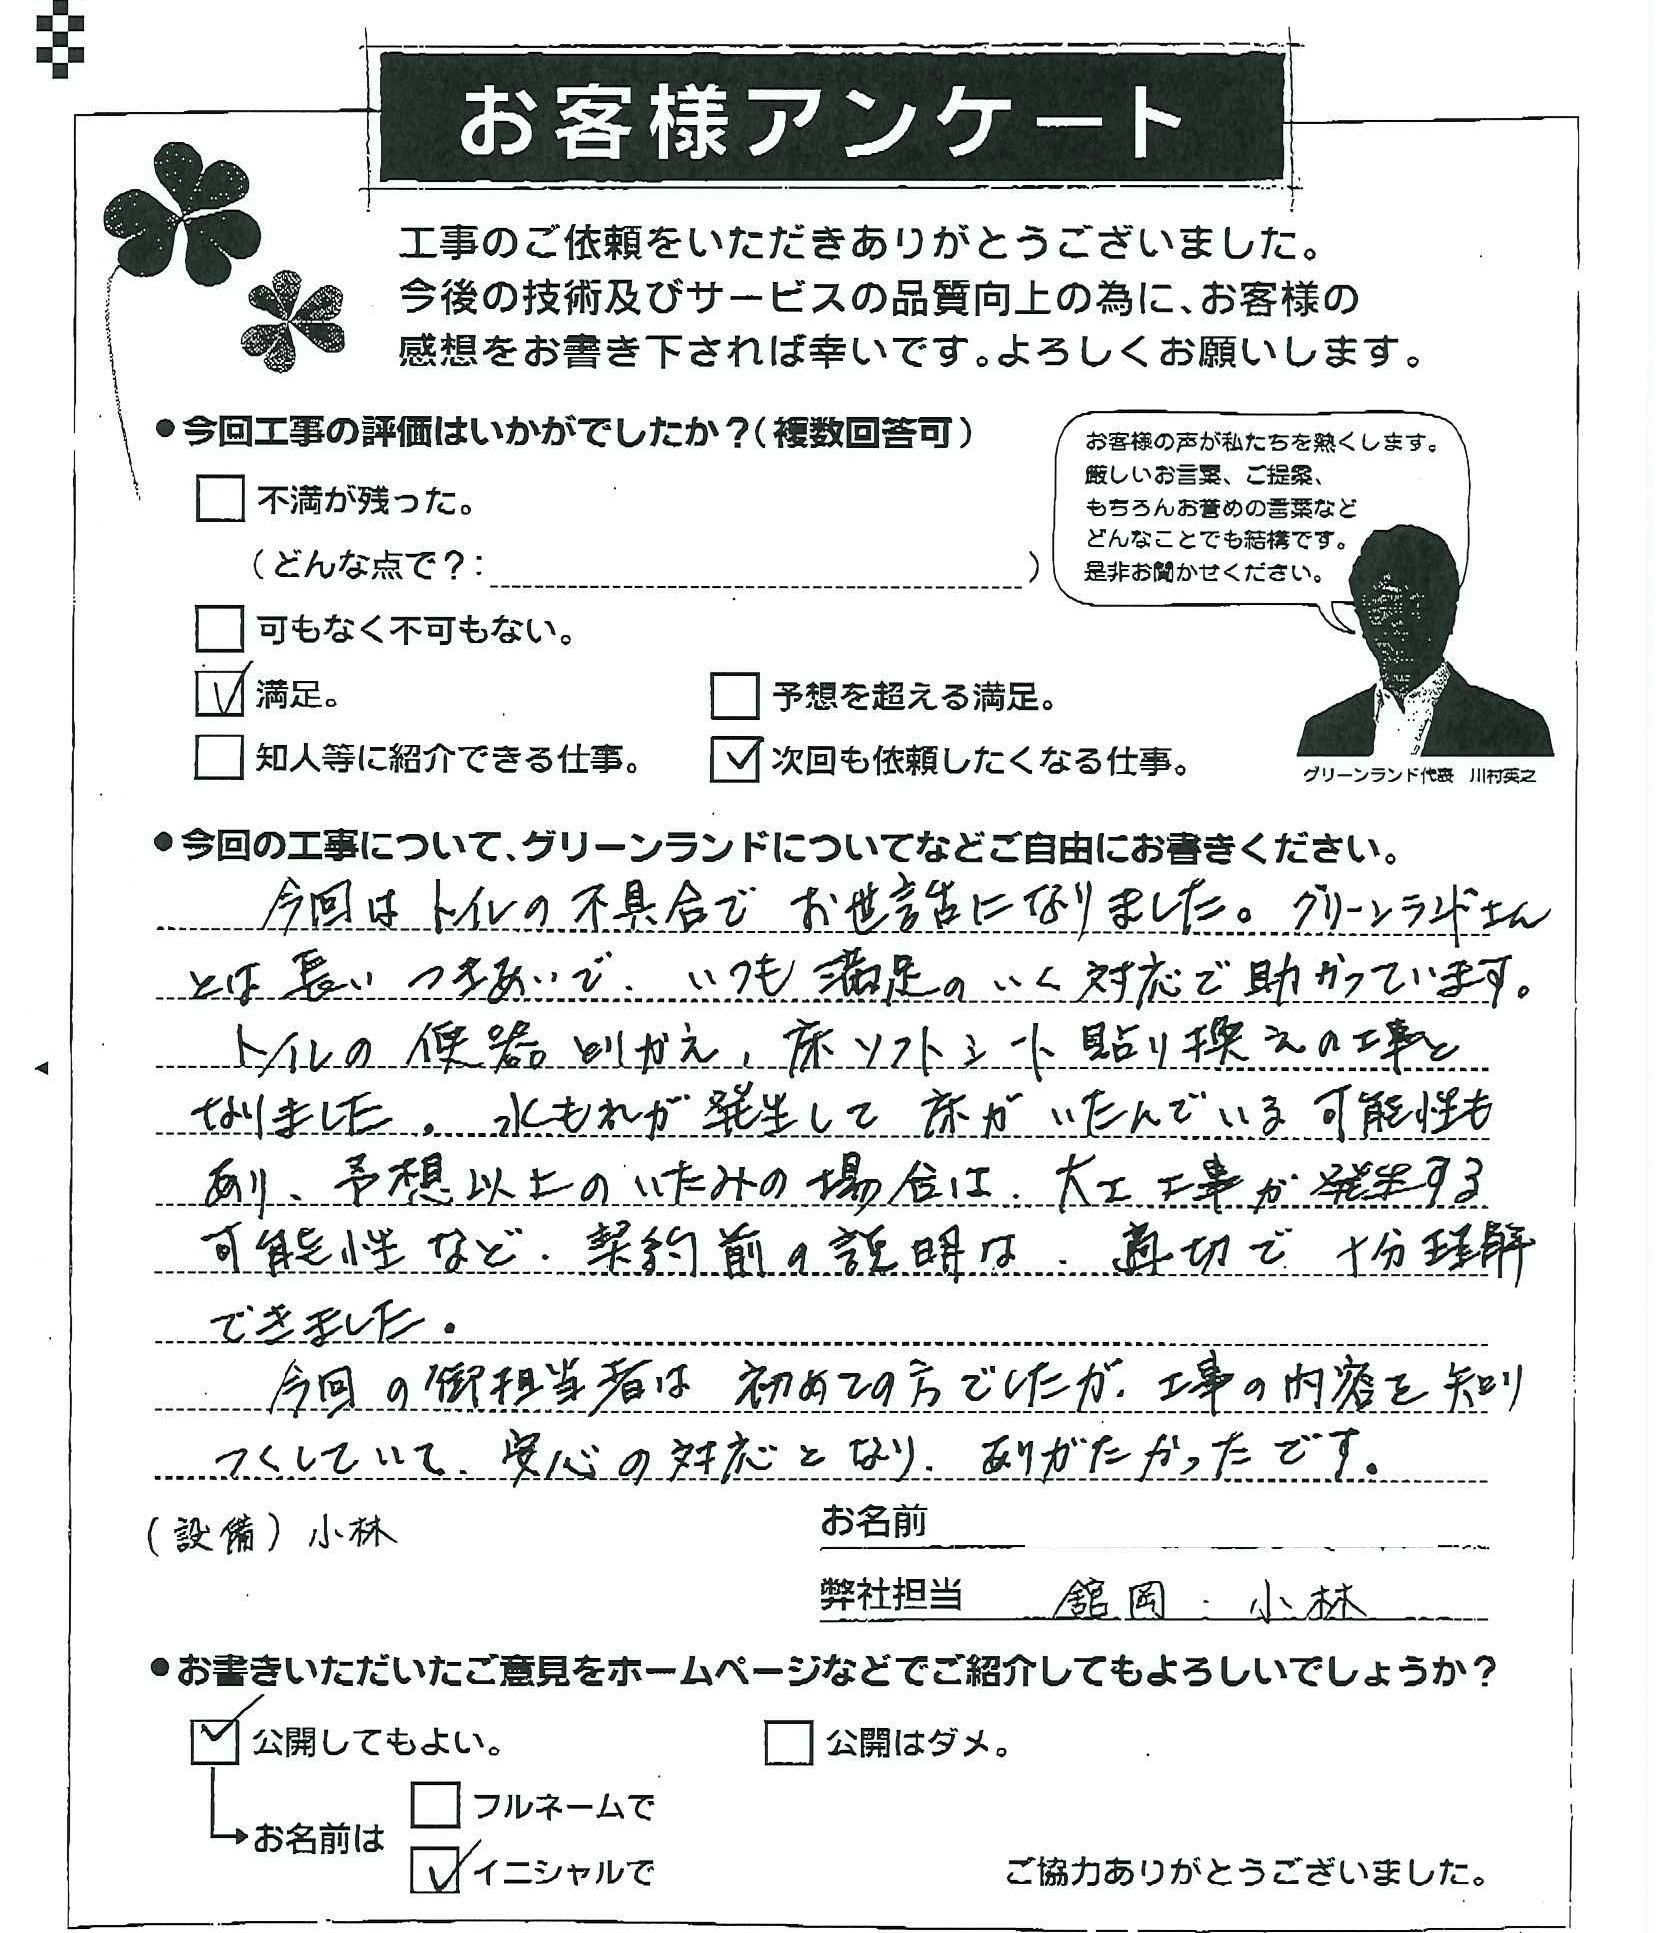 お客様アンケート
工事のご依頼をいただきありがとうございました。
今後の技術及びサービスの品質向上の為に、お客様の
感想をお書き下されば幸いです。よろしくお願いします。
●今回工事の評価はいかがでしたか？（複数回答可）
不満が残った。
（どんな点で？：　）
可もなく不可もない。
満足。
予想を超える満足。
知人等に紹介できる仕事。
次回も依頼したくなる仕事。
お客様の声が私たちを熱くします。
厳しいお言葉、ご提案、
もちろんお誉めの言葉など
どんなことでも結構です。
是非お聞かせください。
グリーンランド代表　川村英之
●今回の工事について、グリーンランドについてなどご自由にお書きください。
今回はトイレの不具合でお世話になりました。グリーンランドさん
とは長いつきあいで、いつも満足のいく対応で助かっています。
トイレの便器とりかえ、床ソフトシート貼り換えの工事と
なりました。水もれが発生して床がいたんでいる可能性も
あり、予想以上のいたみの場合は、大工工事が発生する
可能性など、契約前の説明は、適切で十分理解
できました。
今回の御担当者は初めての方でしたが、工事の内容を知り
つくしていて、安心の対応となり、ありがたかったです。
（設備）小林
お名前
弊社担当　舘岡・小林
●お書きいただいたご意見をホームページなどでご紹介してもよろしいでしょうか？
公開してもよい。
公開はダメ。
お名前は
フルネームで
イニシャルで
ご協力ありがとうございました。